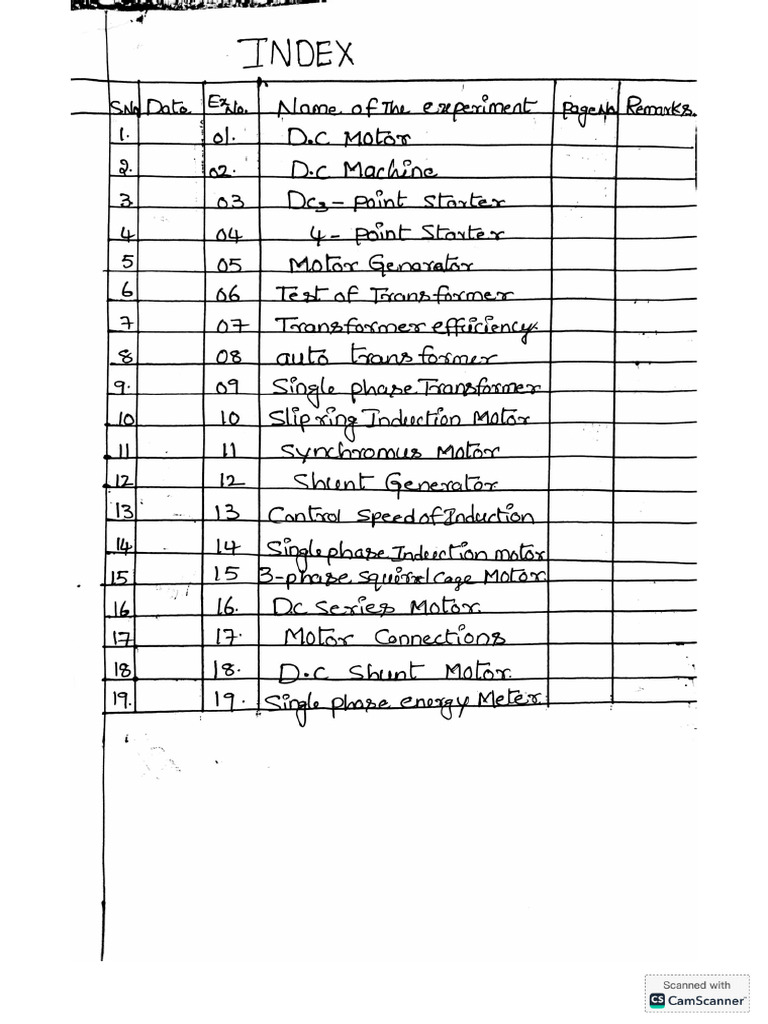 INDEX
S.No Date Ex No. Name of The experiment Page No Remarks.
1. 01. D.C Motor
2. 02. D.C Machine
3 03 Dc 3 - Point Starter
4 04 4 - Point Starter
5 05 Motor Genarator
6 06 Test of Transformer
7 07 Transformer efficiency.
8 08 auto transformer
9. 09 Single phase Transformer
10 10 Slip ring Induction Motor
11 11 Synchromus Motor
12 12 Shunt Generator
13 13 Control Speed of Induction
14 14 Single phase Induction motor
15 15 3-phase squirrel Cage Motor.
16 16. D.c Series Motor.
17 17. Motor Connections
18 18. D.c Shunt Motor.
19. 19. Single phase energy Meter.
Scanned with
CS CamScanner